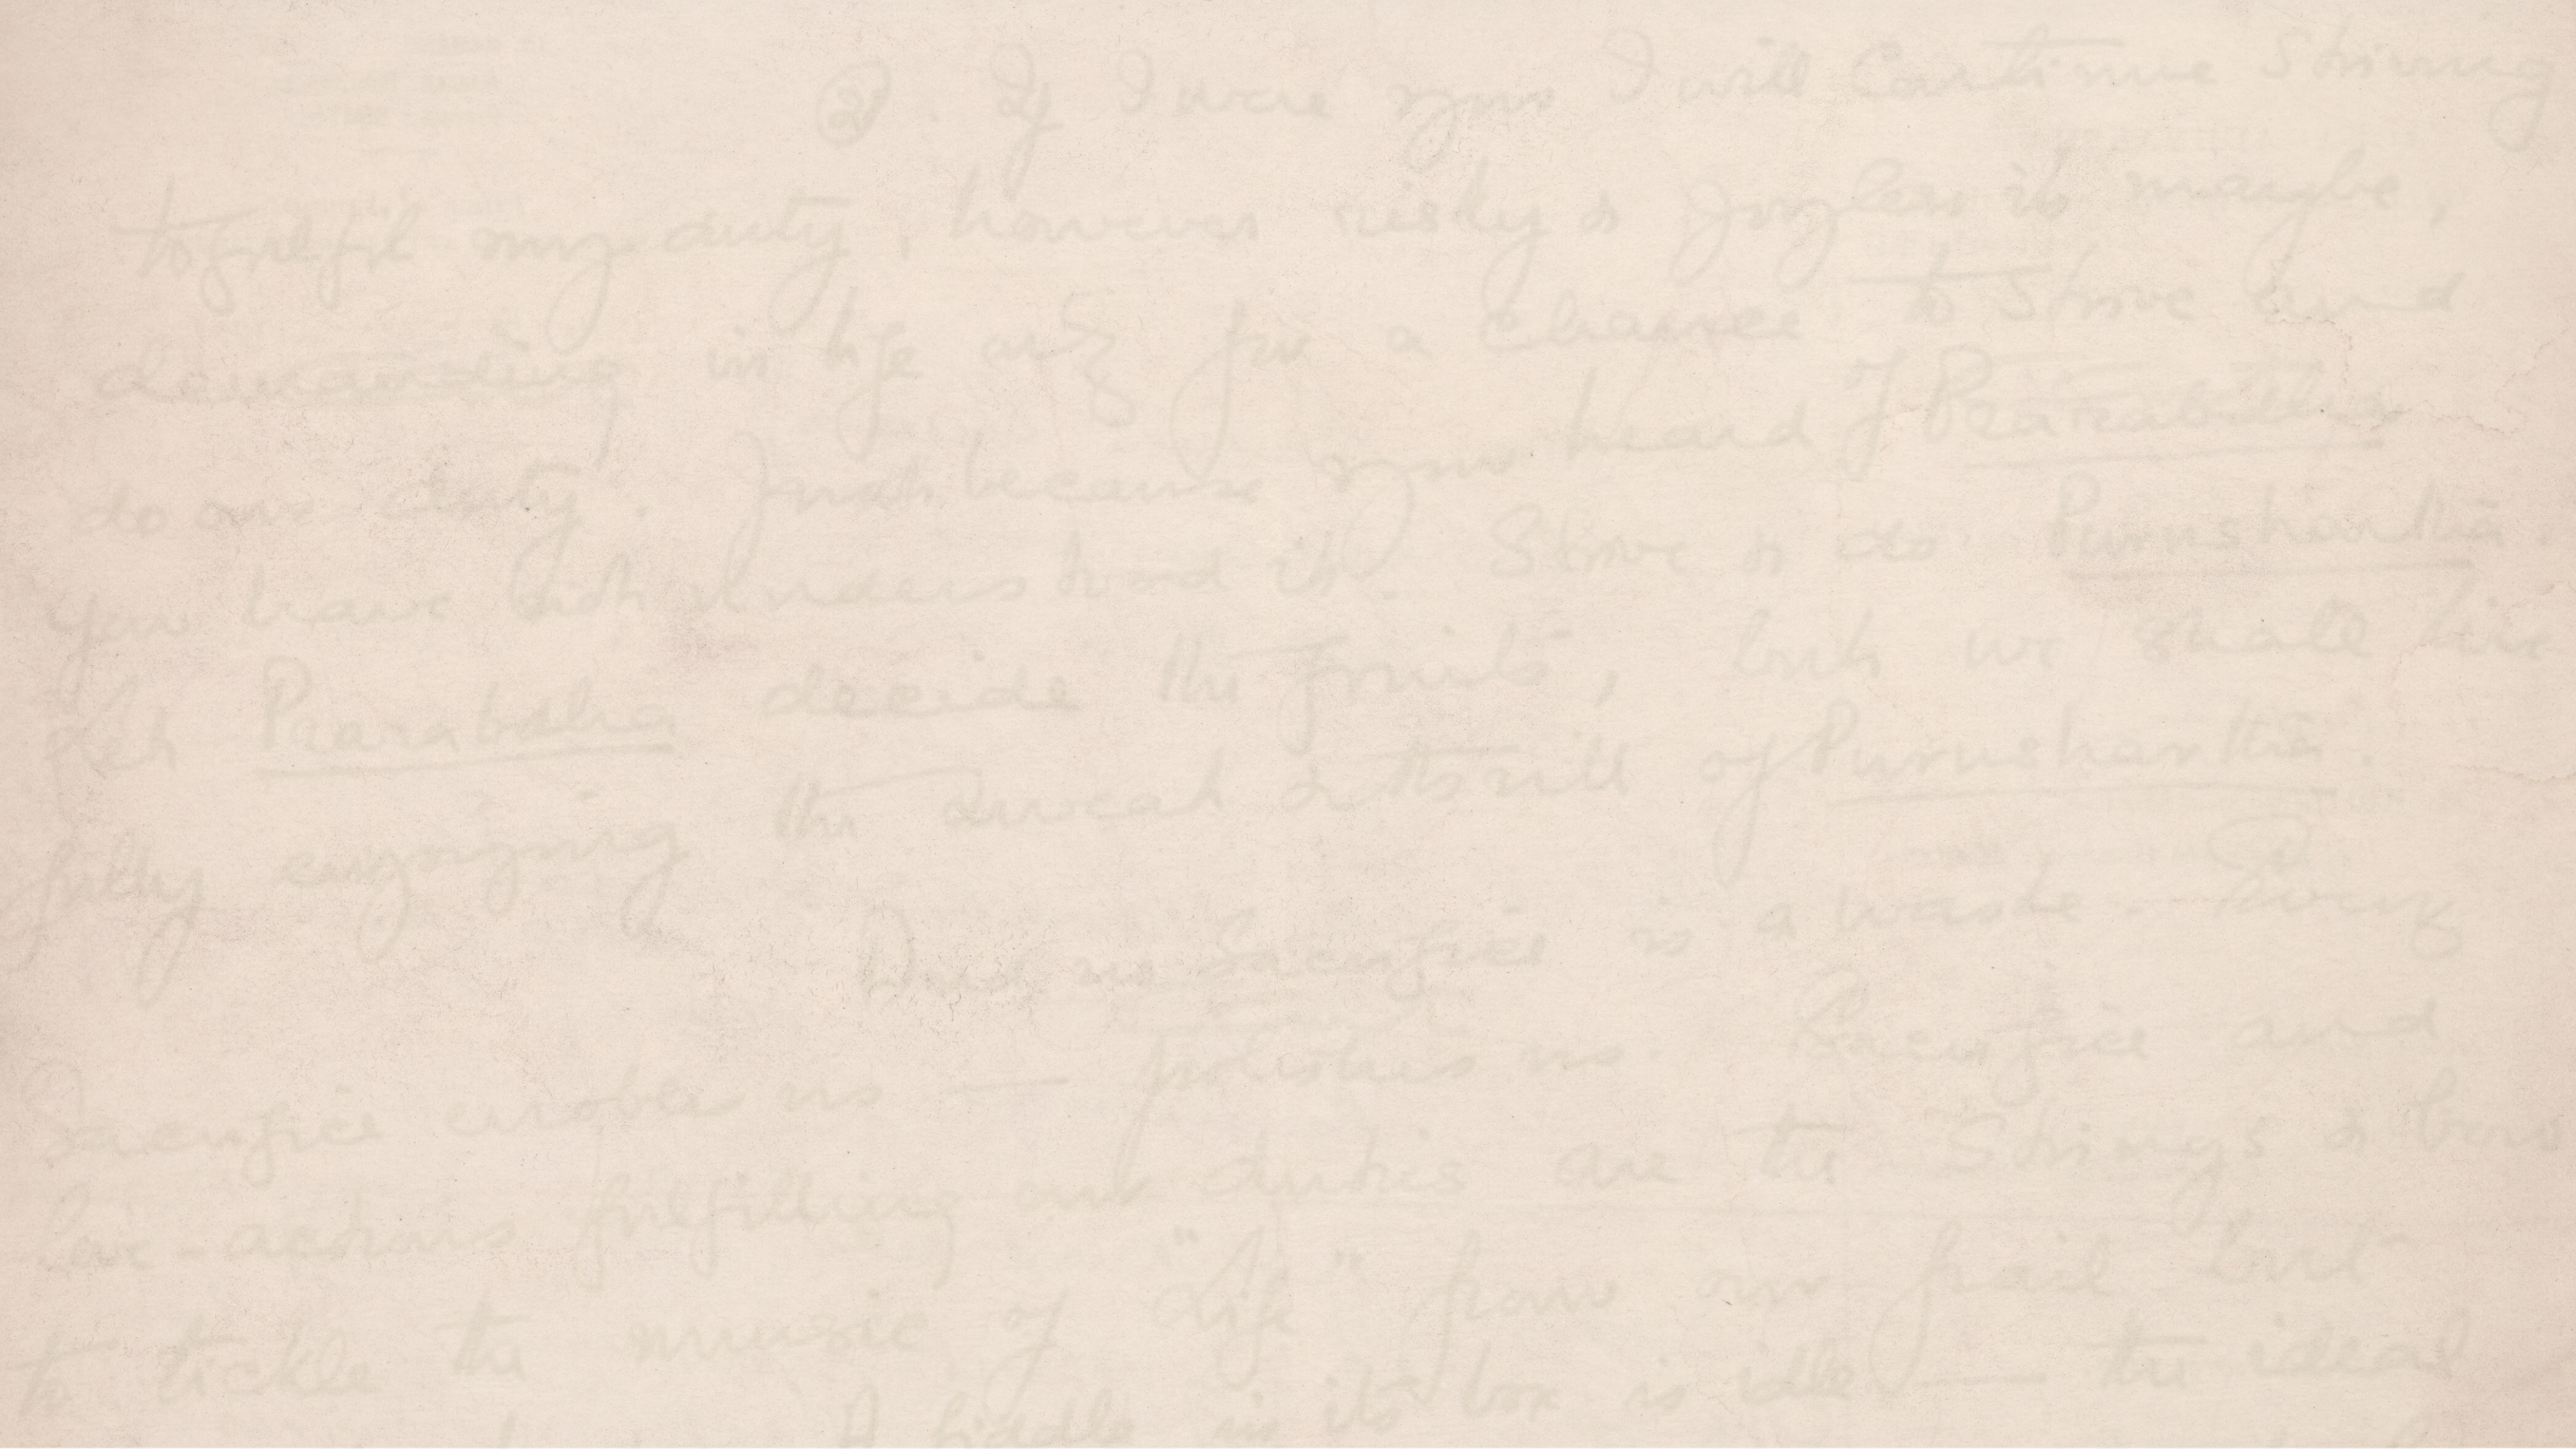 ② . If I were you I will Continue Striving
to fulfil my duty, however risky & Joyless it maybe,
demanding in life only for a chance to Strive and
do our duty. Just because you heard of Prarabdha
you have not understood it. Strive & do Purushartha.
Let Prarabdha decide the fruits, but we shall live
fully enjoying the sweat & thrill of Purushartha.
And no Sacrifice is a waste. Every
Sacrifice ennobles us — polishes us. Sacrifice and
love-actions fulfilling our duties are the Strings & bow
to tickle the music of "Life" from our frail but
A fiddle in its box is idle — the ideal